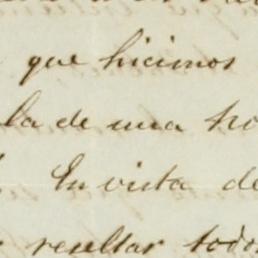 que hicimos
la de una
En vista de
reseltar todos